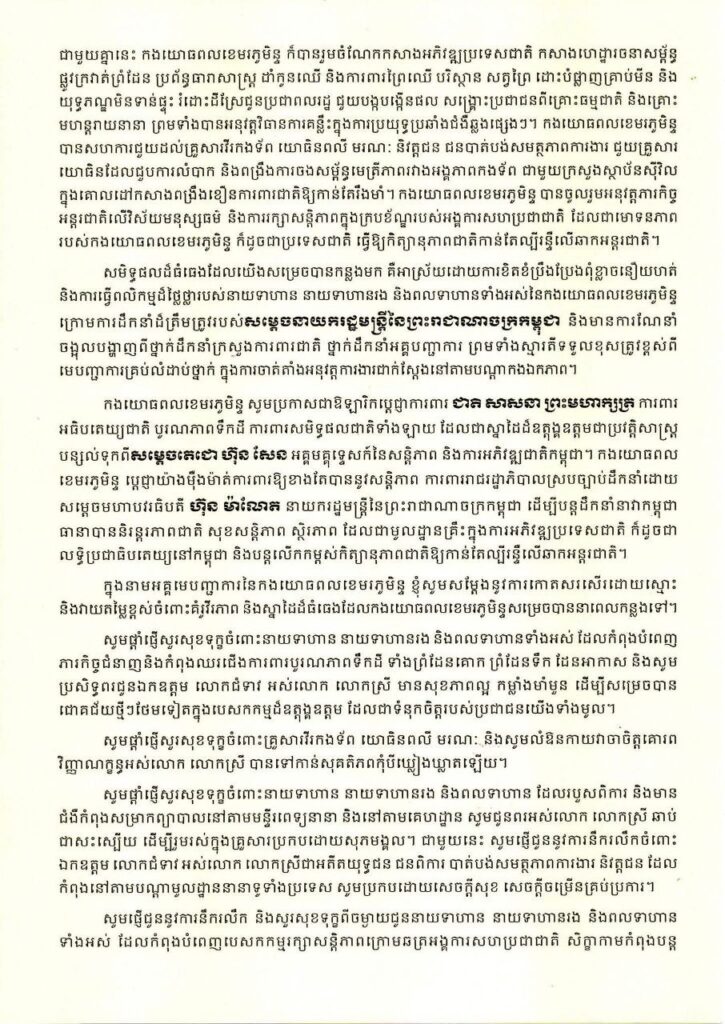 ជាមួយគ្នានេះ កងយោធពលខេមរភូមិន្ទ ក៏បានរួមចំណែកកសាងអភិវឌ្ឍប្រទេសជាតិ កសាងហេដ្ឋារចនាសម្ព័ន្ធ
ផ្លូវក្រវាត់ព្រំដែន ប្រព័ន្ធធារាសាស្ត្រ ដាំកូនឈើ និងការពារព្រៃឈើ បរិស្ថាន សត្វព្រៃ ដោះបំផ្លាញគ្រាប់មីន និង
យុទ្ធភណ្ឌមិនទាន់ផ្ទុះ រំដោះដីស្រែជូនប្រជាពលរដ្ឋ ជួយបង្កបង្កើនផល សង្គ្រោះប្រជាជនពីគ្រោះធម្មជាតិ និងគ្រោះ
មហន្តរាយនានា ព្រមទាំងបានអនុវត្តវិធានការគន្លឹះក្នុងការប្រយុទ្ធប្រឆាំងជំងឺឆ្លងផ្សេងៗ។ កងយោធពលខេមរភូមិន្ទ
បានសហការជួយដល់គ្រួសារវីរកងទ័ព យោធិនពលី មរណៈ និវត្តជន ជនបាត់បង់សមត្ថភាពការងារ ជួយគ្រួសារ
យោធិនដែលជួបការលំបាក និងពង្រឹងការចងសម្ព័ន្ធមេត្រីភាពរវាងអង្គភាពកងទ័ព ជាមួយក្រសួងស្ថាប័នស៊ីវិល
ក្នុងគោលដៅកសាងពង្រឹងខឿនការពារជាតិឱ្យកាន់តែរឹងមាំ។ កងយោធពលខេមរភូមិន្ទ បានចូលរួមអនុវត្តភារកិច្ច
អន្តរជាតិលើវិស័យមនុស្សធម៌ និងការរក្សាសន្តិភាពក្នុងក្របខ័ណ្ឌរបស់អង្គការសហប្រជាជាតិ ដែលជាមោទនភាព
របស់កងយោធពលខេមរភូមិន្ទ ក៏ដូចជាប្រទេសជាតិ ធ្វើឱ្យកិត្យានុភាពជាតិកាន់តែល្បីរន្ទឺលើឆាកអន្តរជាតិ។
សមិទ្ធផលដ៏ធំធេងដែលយើងសម្រេចបានកន្លងមក គឺអាស្រ័យដោយការខិតខំប្រឹងប្រែងពុំខ្លាចនឿយហត់
និងការធ្វើពលិកម្មដ៏ថ្លៃថ្លារបស់នាយទាហាន នាយទាហានរង និងពលទាហានទាំងអស់នៃកងយោធពលខេមរភូមិន្ទ
ក្រោមការដឹកនាំដ៏ត្រឹមត្រូវរបស់សម្តេចនាយករដ្ឋមន្ត្រីនៃព្រះរាជាណាចក្រកម្ពុជា និងមានការណែនាំ
ចង្អុលបង្ហាញពីថ្នាក់ដឹកនាំក្រសួងការពារជាតិ ថ្នាក់ដឹកនាំអគ្គបញ្ជាការ ព្រមទាំងស្មារតីទទួលខុសត្រូវខ្ពស់ពី
មេបញ្ជាការគ្រប់លំដាប់ថ្នាក់ ក្នុងការចាត់តាំងអនុវត្តការងារជាក់ស្តែងនៅតាមបណ្តាកងឯកភាព។
កងយោធពលខេមរភូមិន្ទ សូមប្រកាសជាឱឡារិកប្តេជ្ញាការពារ ជាតិ សាសនា ព្រះមហាក្សត្រ ការពារ
អធិបតេយ្យជាតិ បូរណភាពទឹកដី ការពារសមិទ្ធផលជាតិទាំងឡាយ ដែលជាស្នាដៃដ៏ឧត្តុង្គឧត្តមជាប្រវត្តិសាស្ត្រ
បន្សល់ទុកពីសម្តេចតេជោ ហ៊ុន សែន អគ្គមគ្គុទ្ទេសក៍នៃសន្តិភាព និងការអភិវឌ្ឍជាតិកម្ពុជា។ កងយោធពល
ខេមរភូមិន្ទ ប្តេជ្ញាយ៉ាងម៉ឺងម៉ាត់ការពារឱ្យខាងតែបាននូវសន្តិភាព ការពាររាជរដ្ឋាភិបាលស្របច្បាប់ដឹកនាំដោយ
សម្តេចមហាបវរធិបតី ហ៊ុន ម៉ាណែត នាយករដ្ឋមន្ត្រីនៃព្រះរាជាណាចក្រកម្ពុជា ដើម្បីបន្តដឹកនាំនាវាកម្ពុជា
ធានាបាននិរន្តរភាពជាតិ សុខសន្តិភាព ស្ថិរភាព ដែលជាមូលដ្ឋានគ្រឹះក្នុងការអភិវឌ្ឍប្រទេសជាតិ ក៏ដូចជា
លទ្ធិប្រជាធិបតេយ្យនៅកម្ពុជា និងបន្តលើកកម្ពស់កិត្យានុភាពជាតិឱ្យកាន់តែល្បីរន្ទឺលើឆាកអន្តរជាតិ។
ក្នុងនាមអគ្គមេបញ្ជាការនៃកងយោធពលខេមរភូមិន្ទ ខ្ញុំសូមសម្តែងនូវការកោតសរសើរដោយស្មោះ
និងវាយតម្លៃខ្ពស់ចំពោះគំរូវីរភាព និងស្នាដៃដ៏ធំធេងដែលកងយោធពលខេមរភូមិន្ទសម្រេចបាននាពេលកន្លងទៅ។
សូមផ្តាំផ្ញើសួរសុខទុក្ខចំពោះនាយទាហាន នាយទាហានរង និងពលទាហានទាំងអស់ ដែលកំពុងបំពេញ
ភារកិច្ចជំនាញនិងកំពុងឈរជើងការពារបូរណភាពទឹកដី ទាំងព្រំដែនគោក ព្រំដែនទឹក ដែនអាកាស និងសូម
ប្រសិទ្ធពរជូនឯកឧត្តម លោកជំទាវ អស់លោក លោកស្រី មានសុខភាពល្អ កម្លាំងមាំមួន ដើម្បីសម្រេចបាន
ជោគជ័យថ្មីៗថែមទៀតក្នុងបេសកកម្មដ៏ឧត្តុង្គឧត្តម ដែលជាទំនុកចិត្តរបស់ប្រជាជនយើងទាំងមូល។
សូមផ្តាំផ្ញើសួរសុខទុក្ខចំពោះគ្រួសារវីរកងទ័ព យោធិនពលី មរណៈ និងសូមលំឱនកាយវាចាចិត្តគោរព
វិញ្ញាណក្ខន្ធអស់លោក លោកស្រី បានទៅកាន់សុគតិភពកុំបីឃ្លៀងឃ្លាតឡើយ។
សូមផ្តាំផ្ញើសួរសុខទុក្ខចំពោះនាយទាហាន នាយទាហានរង និងពលទាហាន ដែលរបួសពិការ និងមាន
ជំងឺកំពុងសម្រាកព្យាបាលនៅតាមមន្ទីរពេទ្យនានា និងនៅតាមគេហដ្ឋាន សូមជូនពរអស់លោក លោកស្រី ឆាប់
ជាសះស្បើយ ដើម្បីរួមរស់ក្នុងគ្រួសារប្រកបដោយសុភមង្គល។ ជាមួយនេះ សូមផ្ញើជូននូវការនឹករលឹកចំពោះ
ឯកឧត្តម លោកជំទាវ អស់លោក លោកស្រីជាអតីតយុទ្ធជន ជនពិការ បាត់បង់សមត្ថភាពការងារ និវត្តជន ដែល
កំពុងនៅតាមបណ្តាមូលដ្ឋាននានាទូទាំងប្រទេស សូមប្រកបដោយសេចក្តីសុខ សេចក្តីចម្រើនគ្រប់ប្រការ។
សូមផ្ញើជូននូវការនឹករលឹក និងសួរសុខទុក្ខពីចម្ងាយជូននាយទាហាន នាយទាហានរង និងពលទាហាន
ទាំងអស់ ដែលកំពុងបំពេញបេសកកម្មរក្សាសន្តិភាពក្រោមឆត្រអង្គការសហប្រជាជាតិ សិក្ខាកាមកំពុងបន្ត